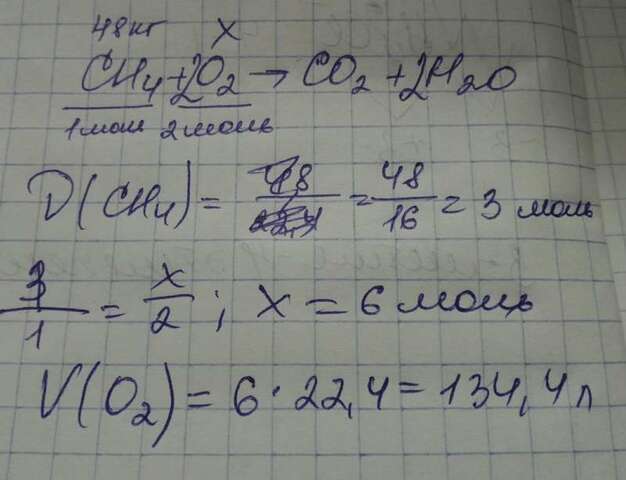 48кг X
CH4+2O2→CO2+2H2O
1моль 2моль
ν(CH4)=48/16=3 моль
3/1=x/2; x=6 моль
V(O2)=6·22,4=134,4л